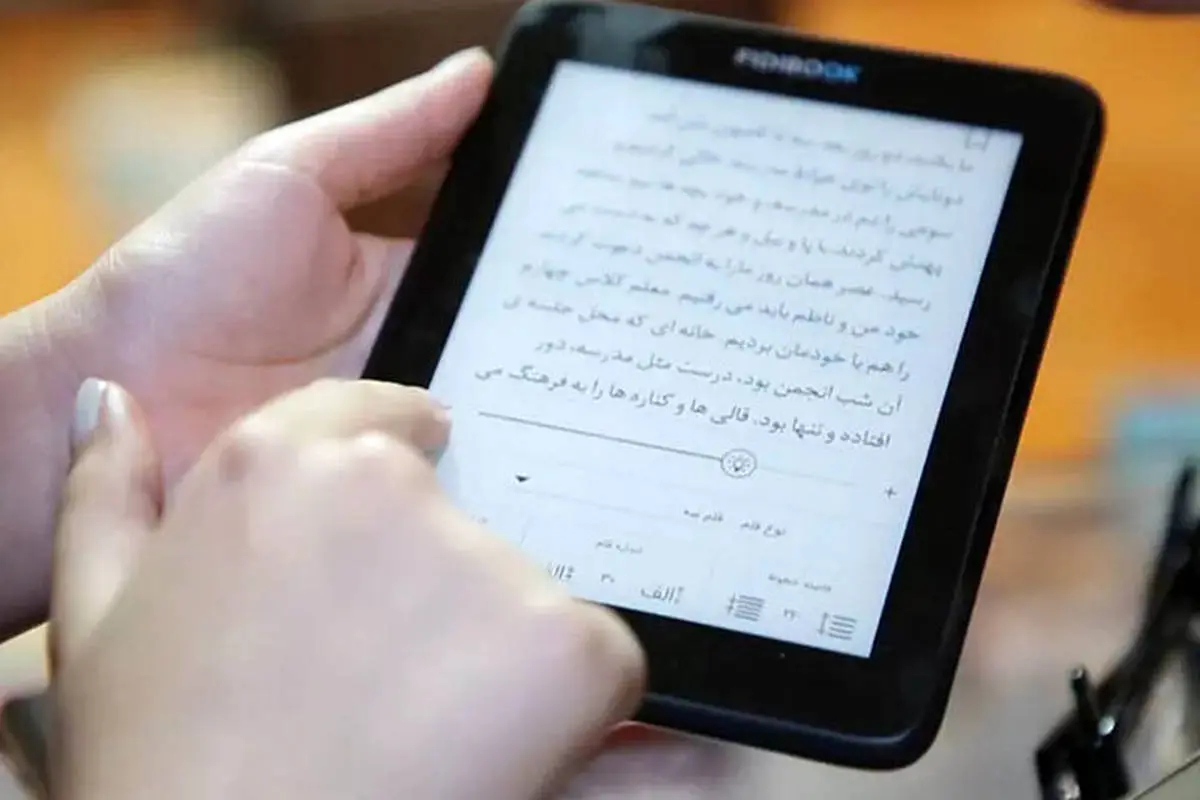 FIDIBOOK
سومی را هم در مدرسه و خود بچه ها
پهنش کردند. با پا و بیل و هر چه که به دست می
رسید. عصر همان روز ما را به انجمن دعوت کردند.
خود من و ناظم باید می رفتیم. معلم کلاس چهارم
را هم با خودمان بردیم. خانه ای که محل جلسه ی
آن شب انجمن بود، درست مثل مدرسه، دور
افتاده و تنها بود. قالی ها و کناره ها را به فرهنگ می
+
نوع قلم قلم
اندازه قلم
فاصله خطوط
الف ۳۰ الف ۲۶